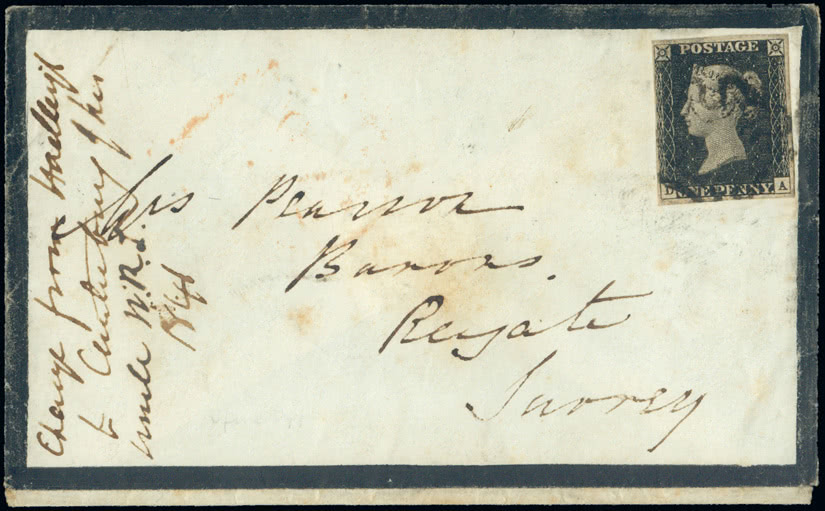 POSTAGE
ONE PENNY
D A
Mrs Pearson
Barons.
Reigate
Surrey
Change from Hadleigh
to Canterbury of her
uncle
1846